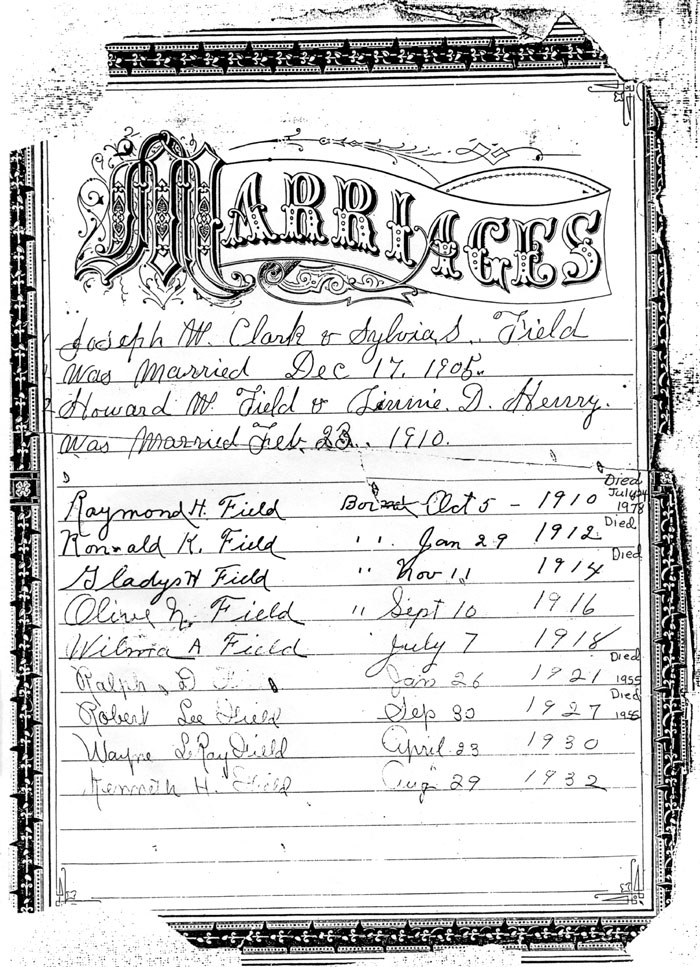 MARRIAGES
Joseph W. Clark & Sylvia S. Field
Was Married Dec 17. 1905.
Howard W. Field & Linnie. D. Henry.
Was Married Feb. 23. 1910.
Died
Raymond H. Field Born Oct 5 - 1910 July 24 1978
Ronald K. Field " Jan 29 1912 Died
Gladys H Field " Nov 11 1914 Died
Olive N. Field " Sept 10 1916
Wilma A Field July 7 1918
Ralph D Jan 26 1921 Died 1955
Robert Lee Field Sep 30 1927 Died 1955
Wayne LRay Field April 23 1930
Kenneth H. Field Aug 29 1932